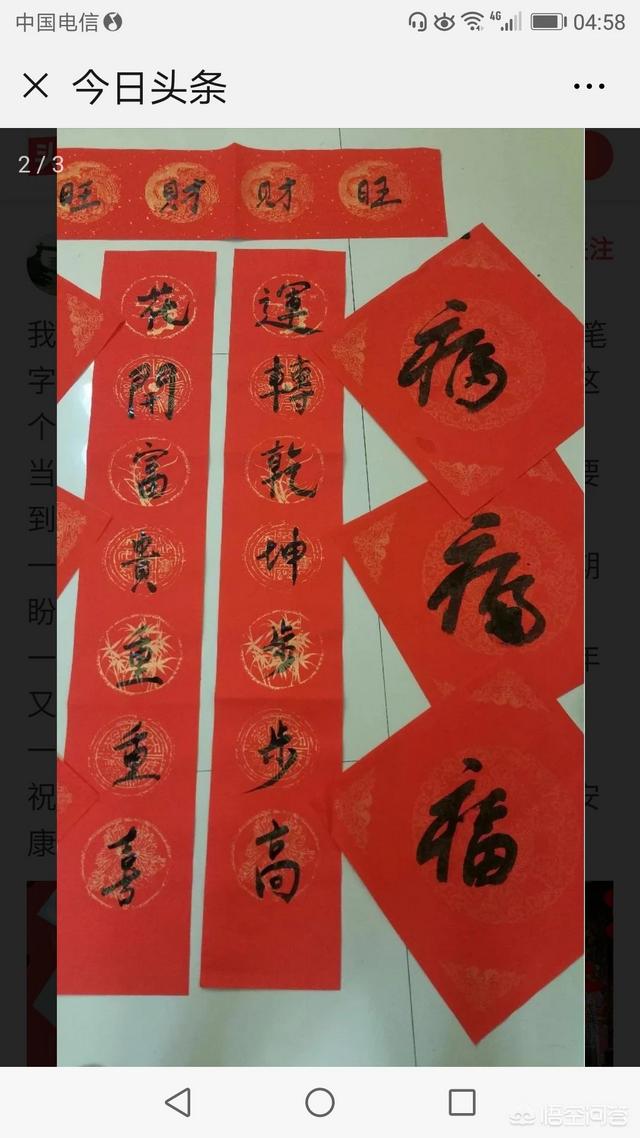 中国电信 4G 04:58
今日头条
2/3
注
旺財財旺
運轉乾坤步步高
花開富貴重重喜
福
我
笔
字
这
个
当
要
到
一
期
盼
一
年
又
一
祝
安
康
悟空问答